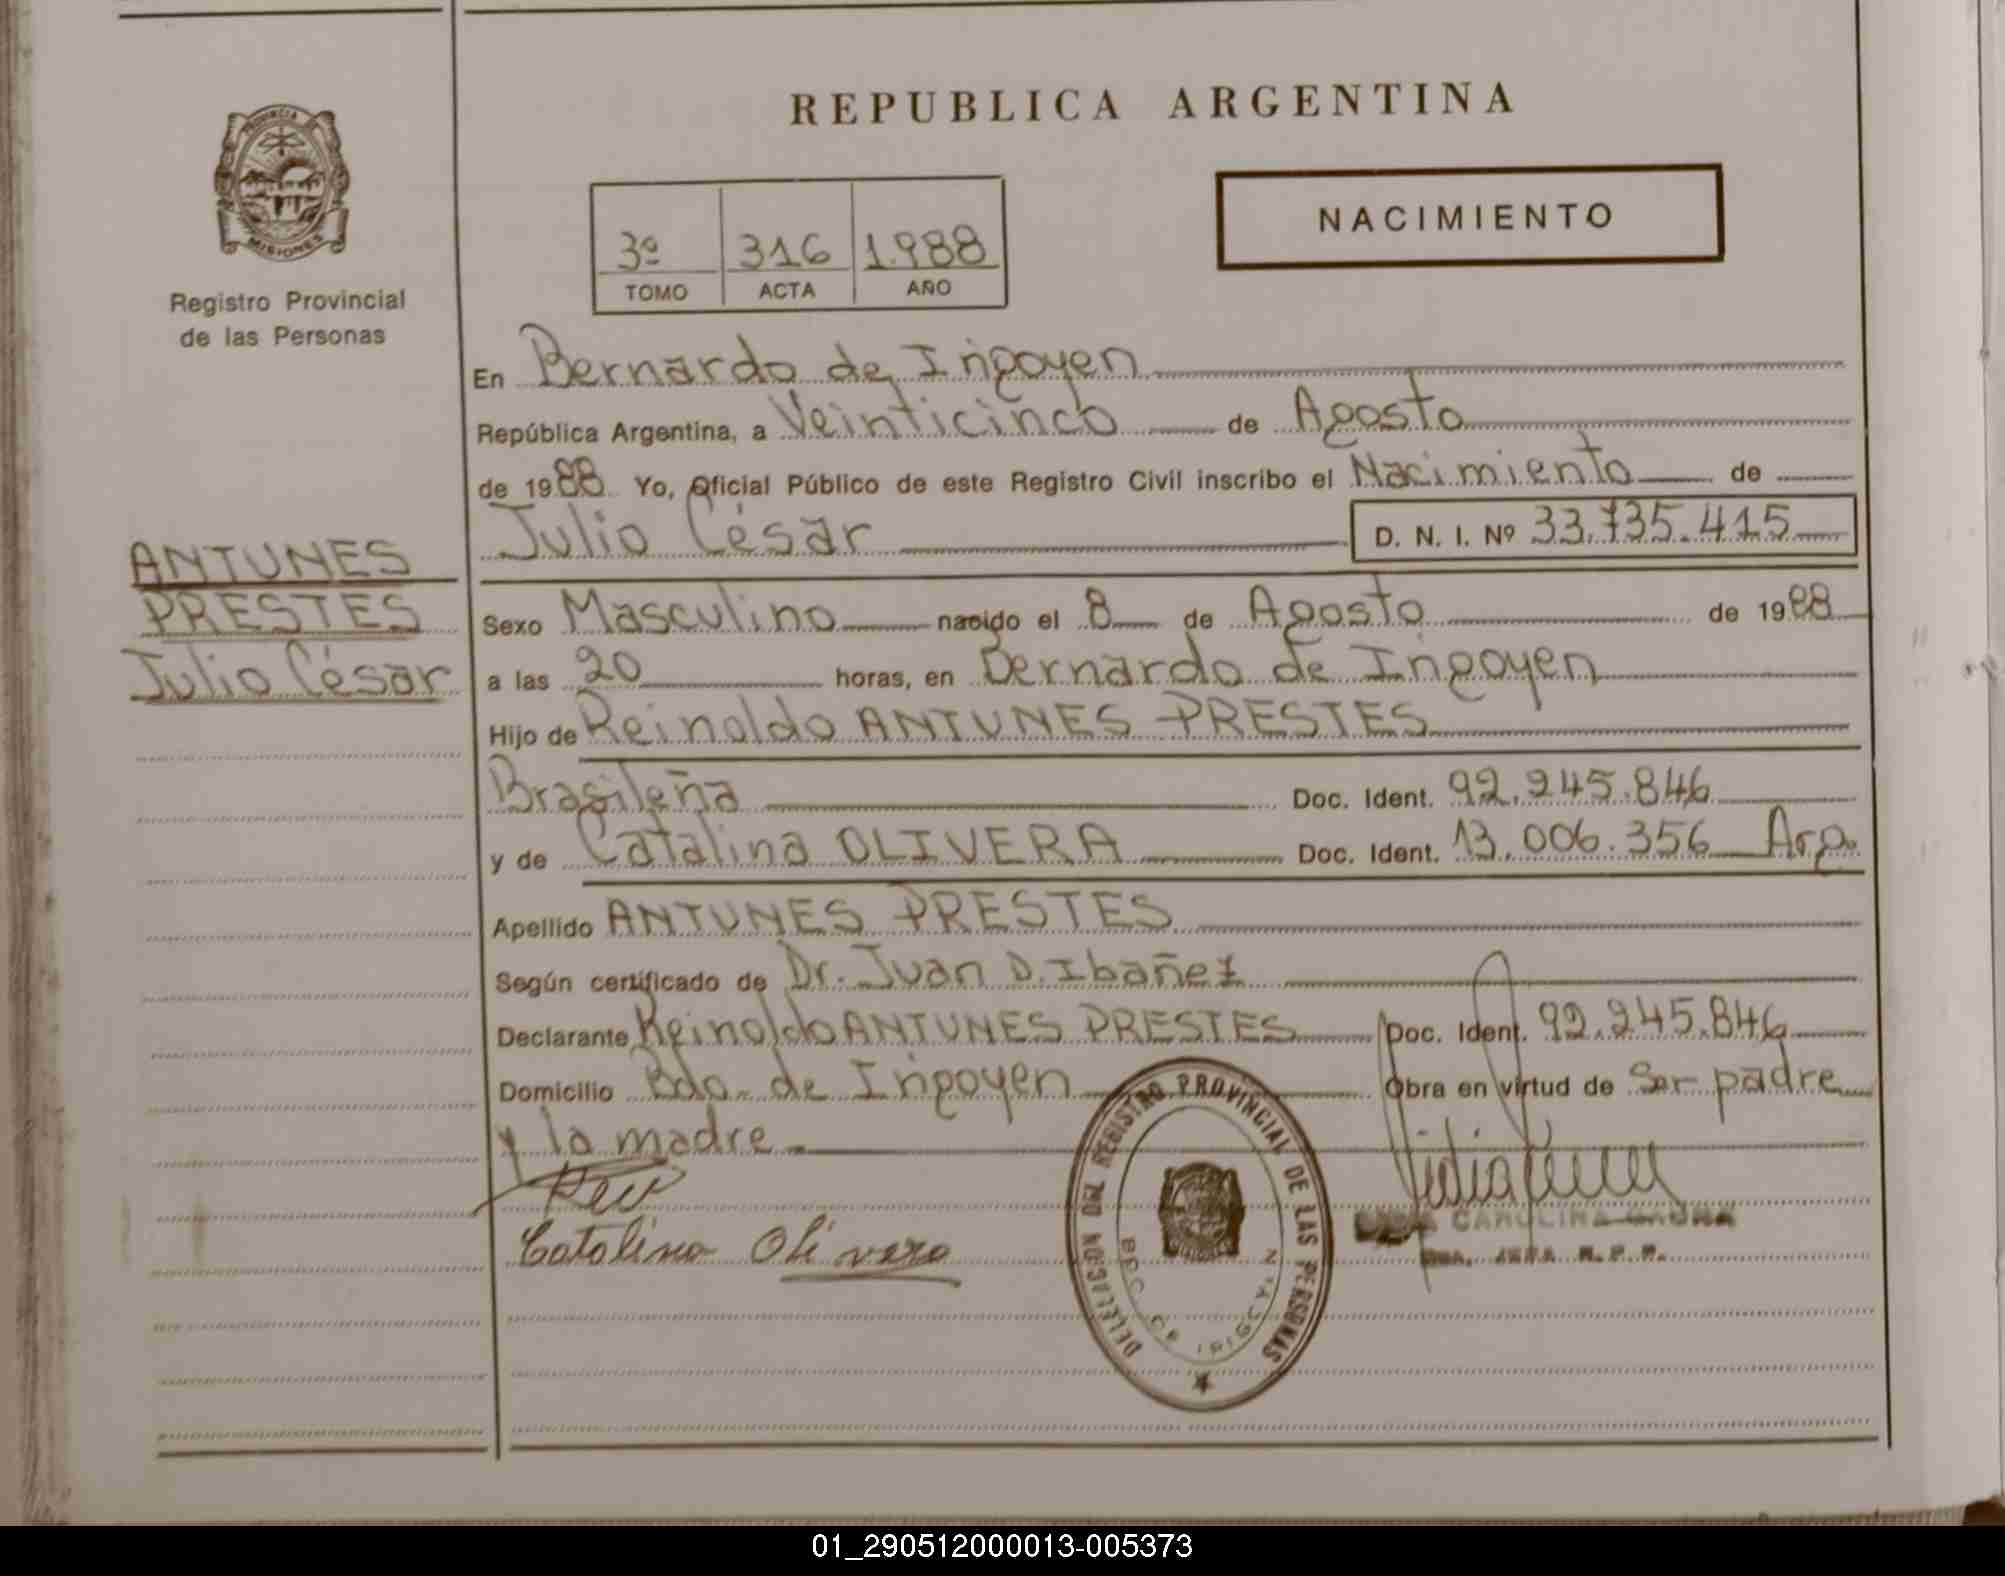 REPUBLICA ARGENTINA
PROVINCIA
MISIONES
Registro Provincial
de las Personas
3º 316 1.988
TOMO ACTA AÑO
NACIMIENTO
En Bernardo de Irigoyen
República Argentina, a Veinticinco de Agosto
de 1988 Yo, Oficial Público de este Registro Civil inscribo el Nacimiento de
Julio César D. N. I. Nº 33.735.415
ANTUNES
PRESTES
Julio César
Sexo Masculino nacido el 8 de Agosto de 1988
a las 20 horas, en Bernardo de Irigoyen
Hijo de Reinoldo ANTUNES PRESTES
Brasileña Doc. Ident. 92.245.846
y de Catalina OLIVERA Doc. Ident. 13.006.356 Arg.
Apellido ANTUNES PRESTES
Según certificado de Dr. Juan D. Ibañez
Declarante Reinoldo ANTUNES PRESTES Doc. Ident. 92.245.846
Domicilio Bdo. de Irigoyen Obra en virtud de Ser padre
y la madre
Catalina Olivera
DELEGACION DEL REGISTRO PROVINCIAL DE LAS PERSONAS
BDO. DE IRIGOYEN
CAROLINA
JEFA R. P. P.
01_290512000013-005373